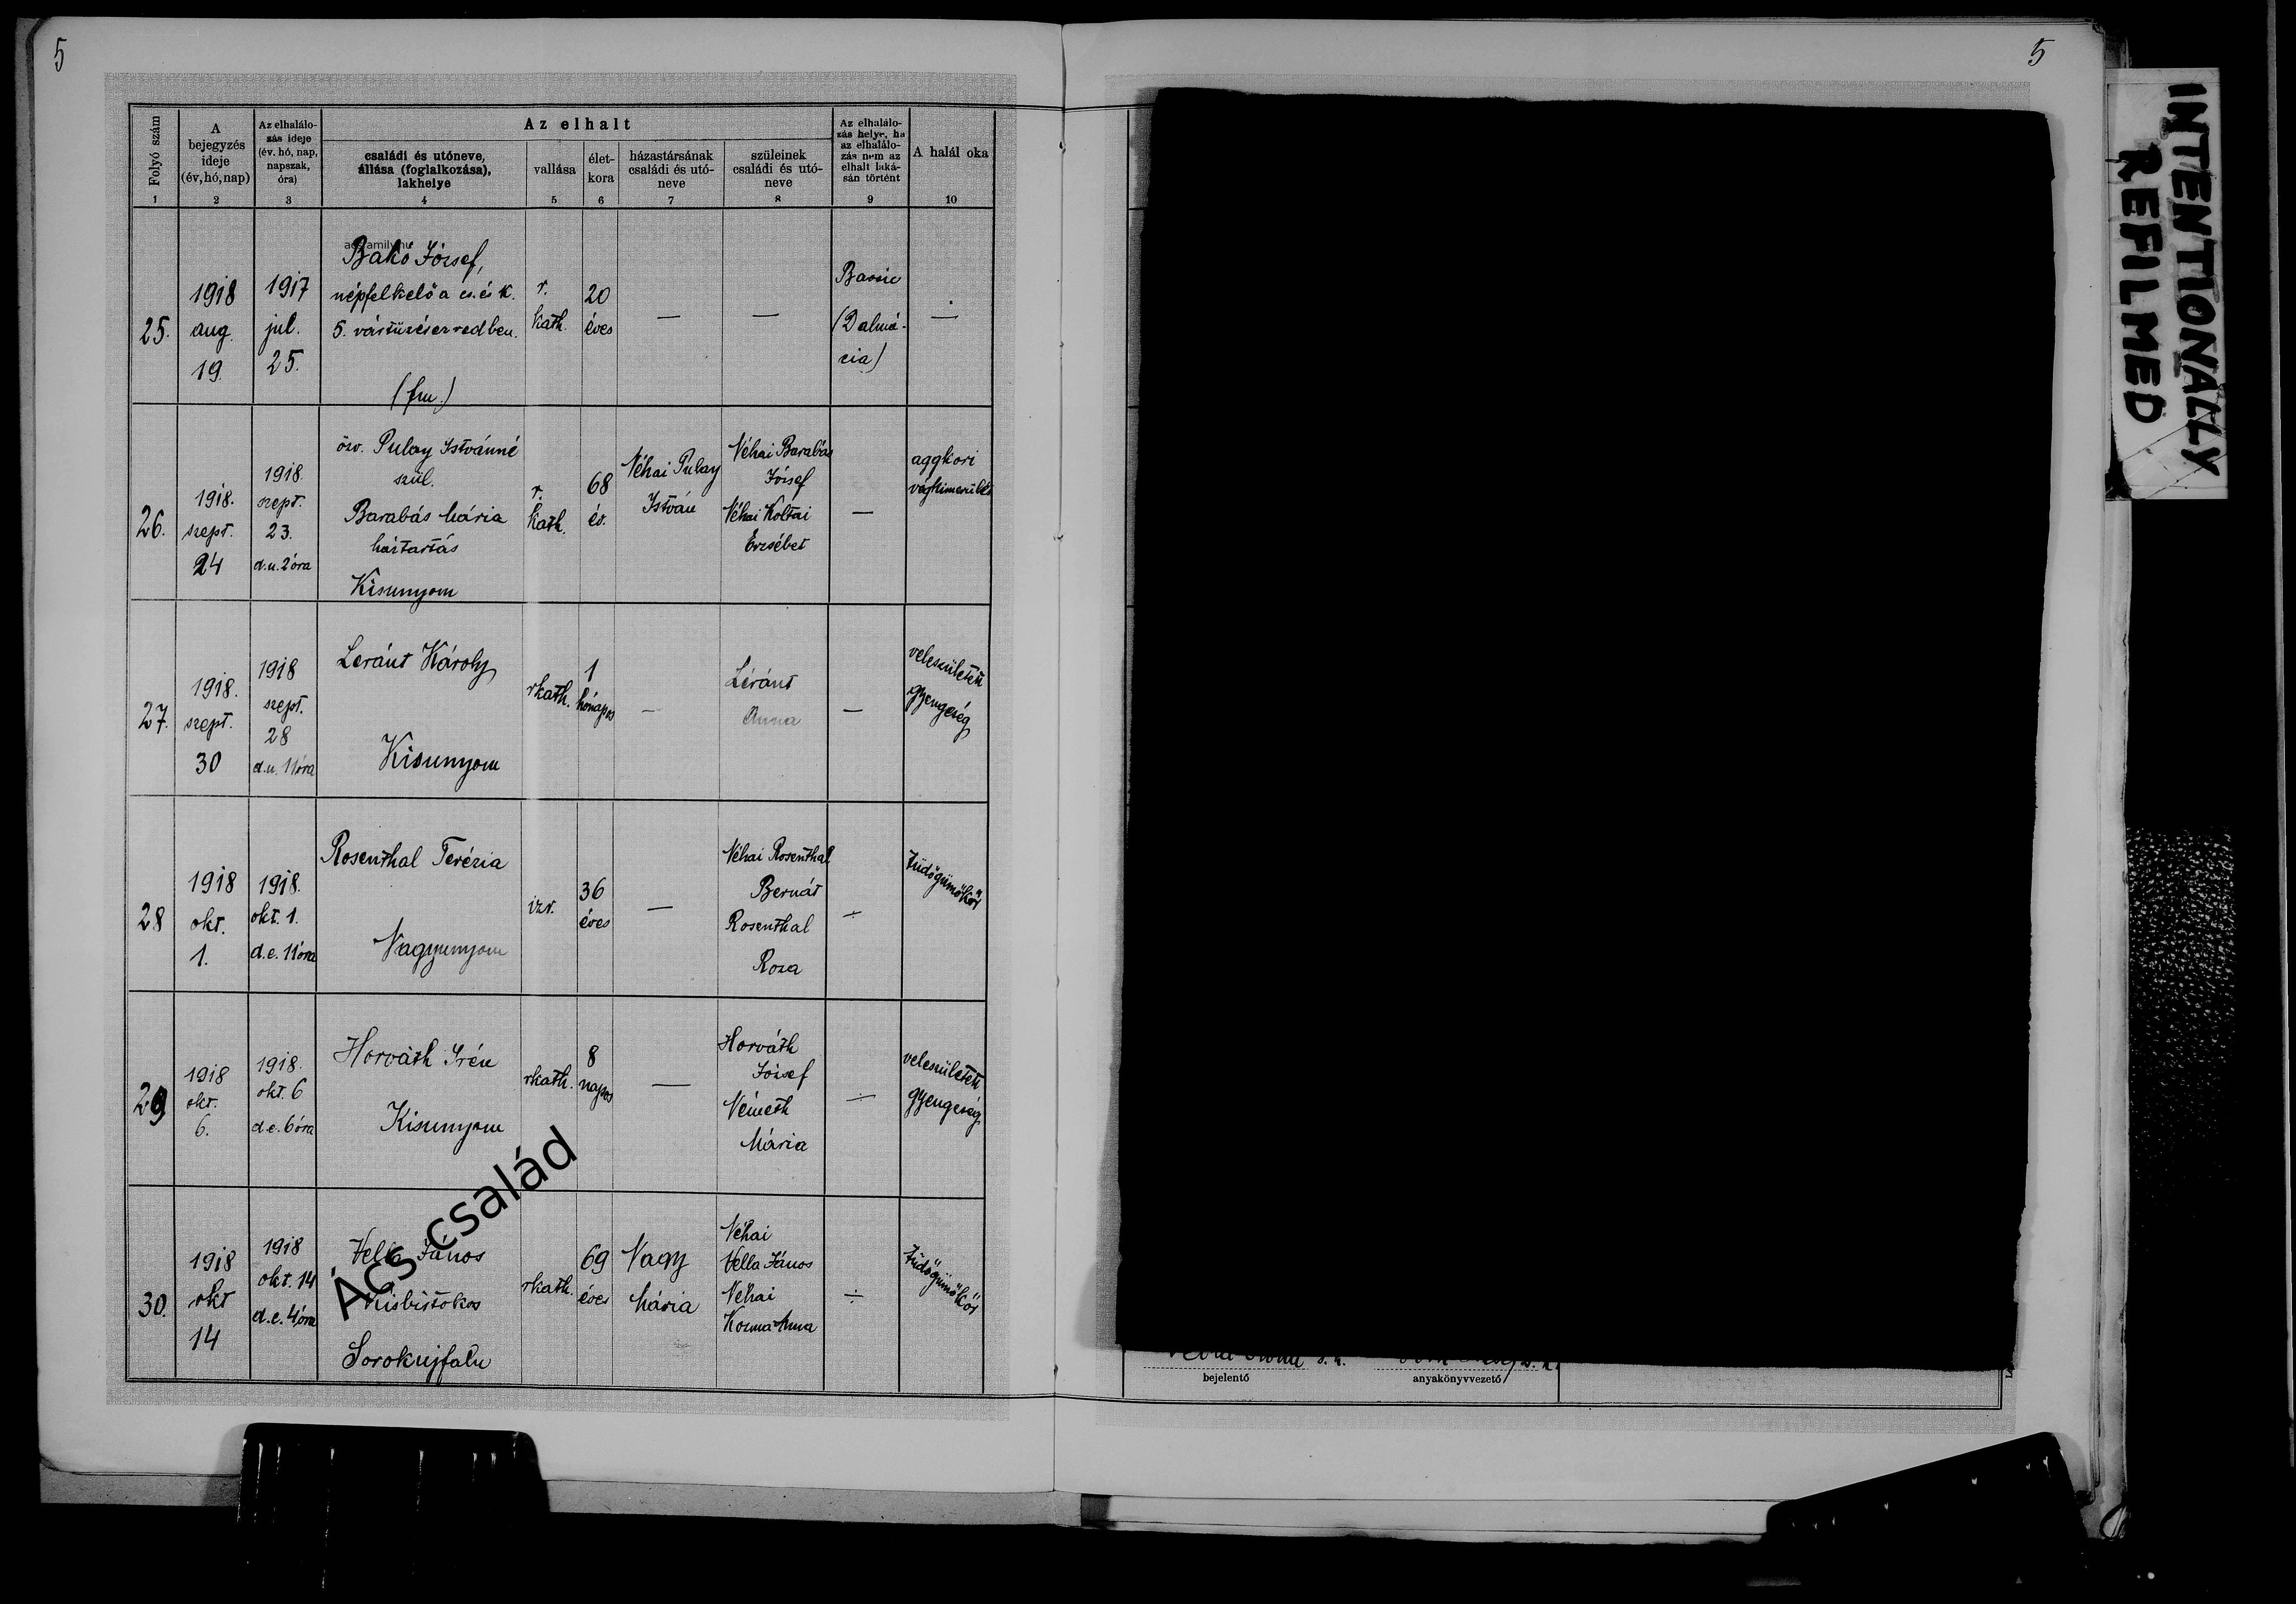 5
5
INTENTIONALLY
REFILMED
Folyó szám
A
bejegyzés
ideje
(év, hó, nap)
Az elhalálo-
zás ideje
(év. hó, nap,
napszak,
óra)
Az elhalt
családi és utóneve,
állása (foglalkozása),
lakhelye
vallása
élet-
kora
házastársának
családi és utó-
neve
szüleinek
családi és utó-
neve
Az elhalálo-
zás helye, ha
az elhalálo-
zás nem az
elhalt laká-
sán történt
A halál oka
1 2 3 4 5 6 7 8 9 10
25.
1918
aug.
19.
1917
jul.
25.
Bakó József,
népfelkelő a cs. és k.
5. vártüzérezredben.
(fm.)
r.
kath.
20
éves
—
—
(Dalmá-
cia)
—
26.
1918.
szept.
24
1918.
szept.
23.
d.u. 2 óra
özv. Pulay Istvánné
szül.
Barabás Mária
háztartás
Kisunyom
r.
kath.
68
év.
Néhai Pulay
István
Néhai Barabás
József
Néhai Koltai
Erzsébet
—
aggkori
végkimerülés
27.
1918.
szept.
30
1918
szept.
28
d.u. 11 óra
Leránt Károly
Kisunyom
rkath.
1
hónapos
—
Léránt
Anna
—
veleszületett
gyengeség
28
1918
okt.
1.
1918.
okt. 1.
d.e. 11 óra
Rosenthal Terézia
Nagyunyom
izr.
36
éves
—
Néhai Rosenthal
Bernát
Rosenthal
Roza
÷
tüdőgümőkór
29
1918
okt.
6.
1918.
okt. 6
d.e. 6 óra
Horváth Irén
Kisunyom
rkath.
8
napos
—
Horváth
József
Németh
Mária
÷
veleszületett
gyengeség
30.
1918
okt
14
1918
okt. 14
d.e. 4 óra
Vella János
kisbirtokos
Sorokujfalu
rkath.
69
éves
Nagy
Mária
Néhai
Vella János
Néhai
Kozma Anna
÷
tüdőgümőkór
Ács család
bejelentő
anyakönyvvezető